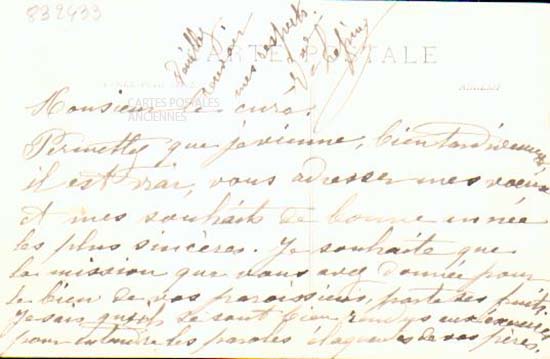 832433
CARTE POSTALE
CARTES POSTALES
ANCIENNES
Veuillez
recevoir
mes respects
Monsieur le curé.
Permettez que je vienne, bien tardivement,
il est vrai, vous adresser mes vœux
et mes souhaits de bonne année
les plus sincères. Je souhaite que
la mission que vous avez donnée pour
le bien de vos paroissiens, porte ses fruits.
Je sais qu'ils se sont bien rendus aux exercices
pour entendre les paroles éloquentes de vos pères.